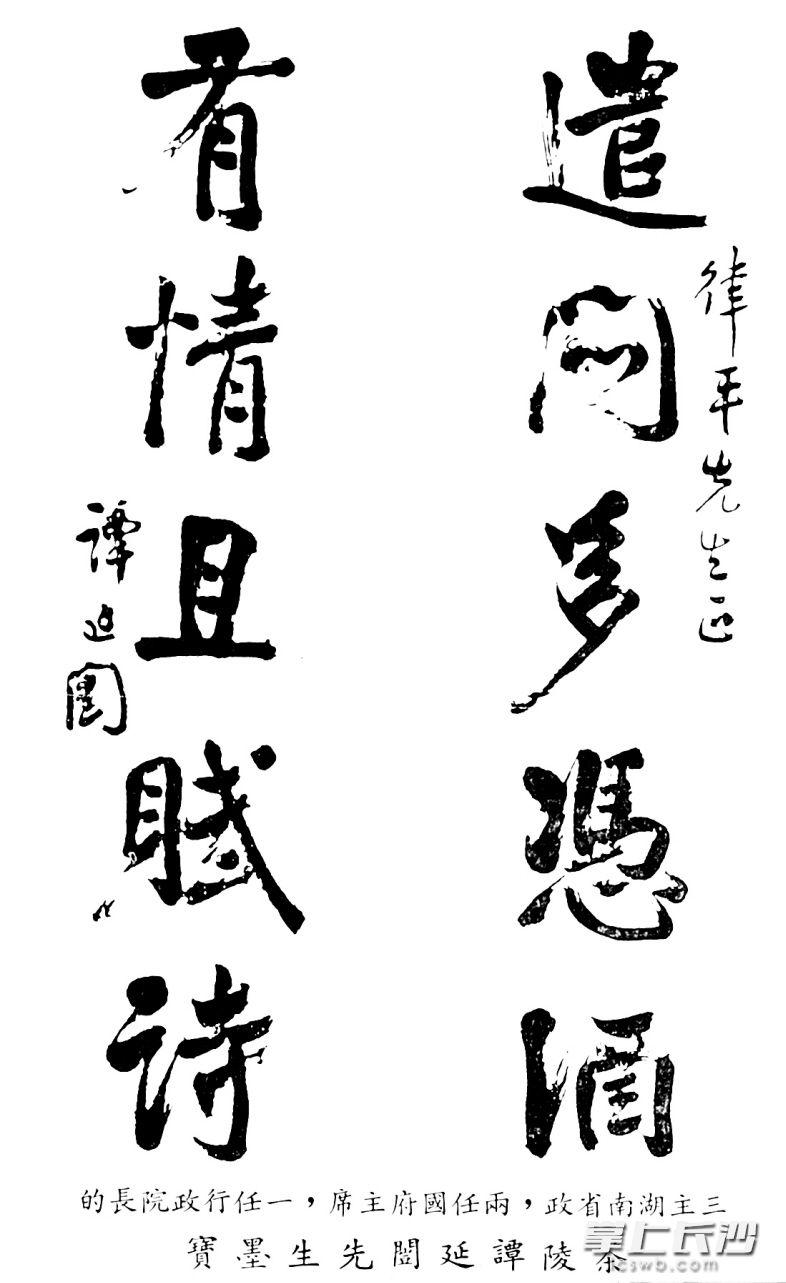 律平先生正
遣悶多憑酒
有情且賦詩
譚延闓
三主湖南省政，兩任國府主席，一任行政院長的
茶陵譚延闓先生墨寶
掌上长沙
cswb.com